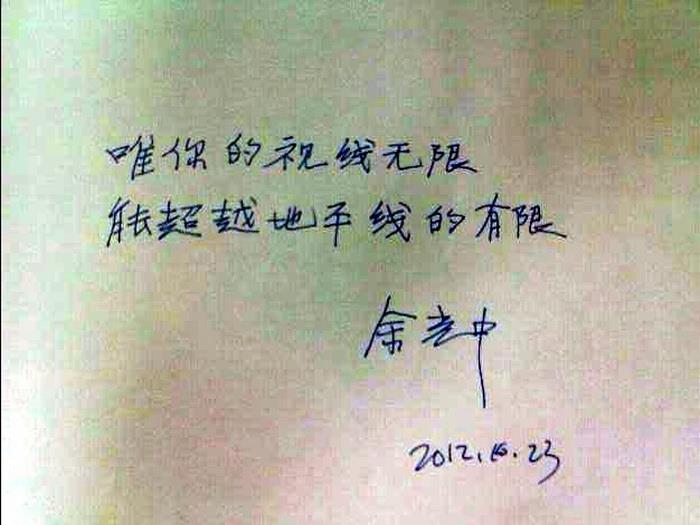 唯你的视线无限
能超越地平线的有限
余光中
2012.10.23